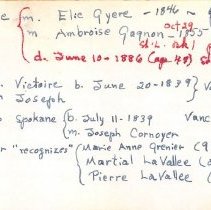 e { m. Elie Gyere - 1846
m Ambroise Gagnon - 1855 Oct 29
d. June 10-1886 (age 48)
Victoire b. June 20-1839 } V
m Joseph
Spokane { b. July 11-1839 Vanc
m. Joseph Cornoyer
"recognizes" { Marie Anne Grenier (9
Martial LaVallee (
Pierre LaVallee (